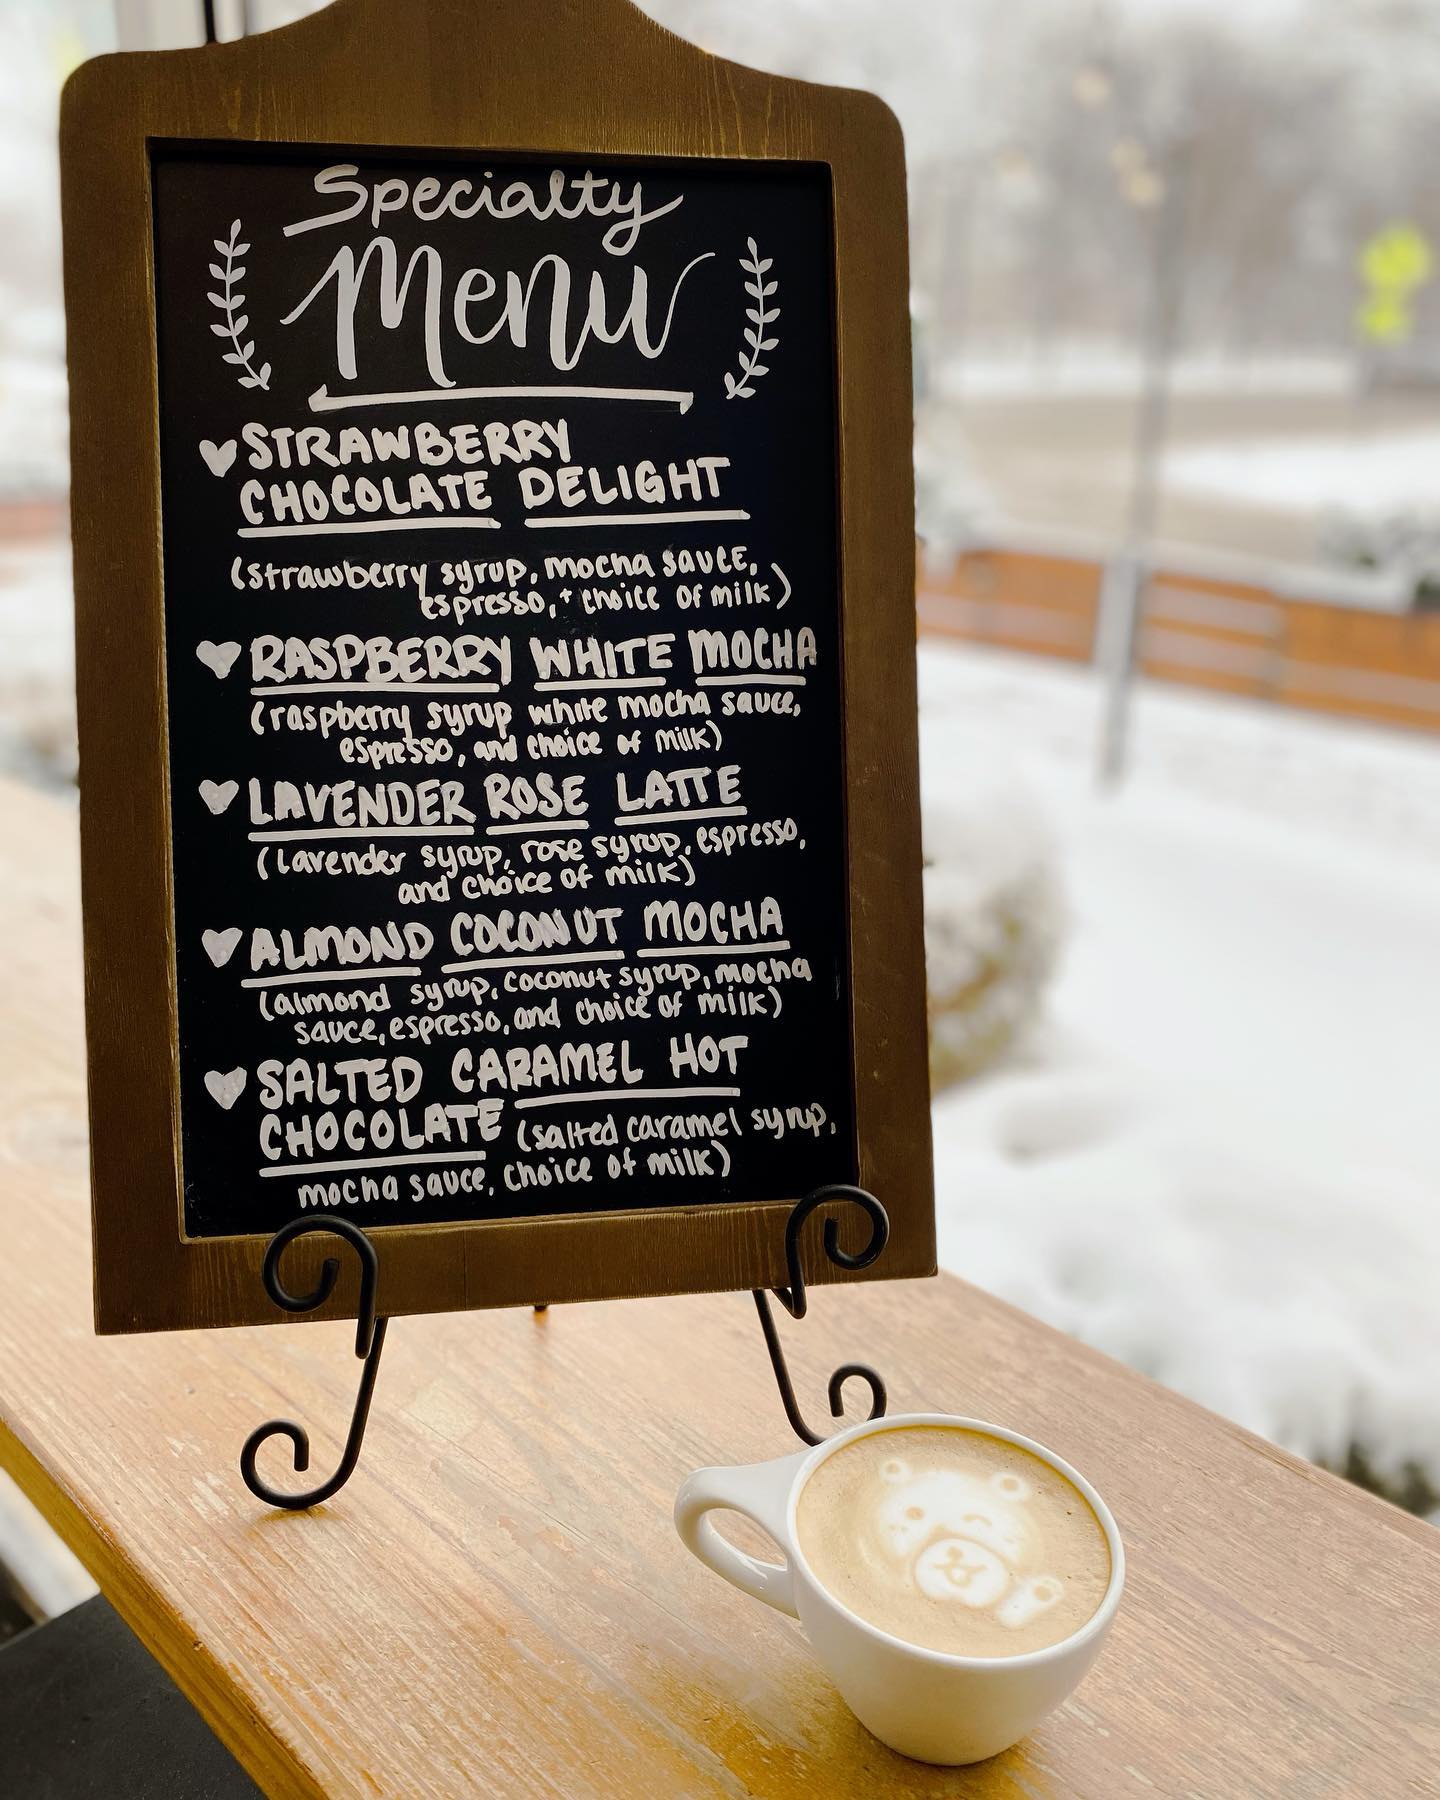 Specialty
Menu
STRAWBERRY
CHOCOLATE DELIGHT
(strawberry syrup, mocha sauce,
espresso, + choice of milk)
RASPBERRY WHITE MOCHA
(raspberry syrup white mocha sauce,
espresso, and choice of milk)
LAVENDER ROSE LATTE
(lavender syrup, rose syrup, espresso,
and choice of milk)
ALMOND COCONUT MOCHA
(almond syrup, coconut syrup, mocha
sauce, espresso, and choice of milk)
SALTED CARAMEL HOT
CHOCOLATE (salted caramel syrup,
mocha sauce, choice of milk)